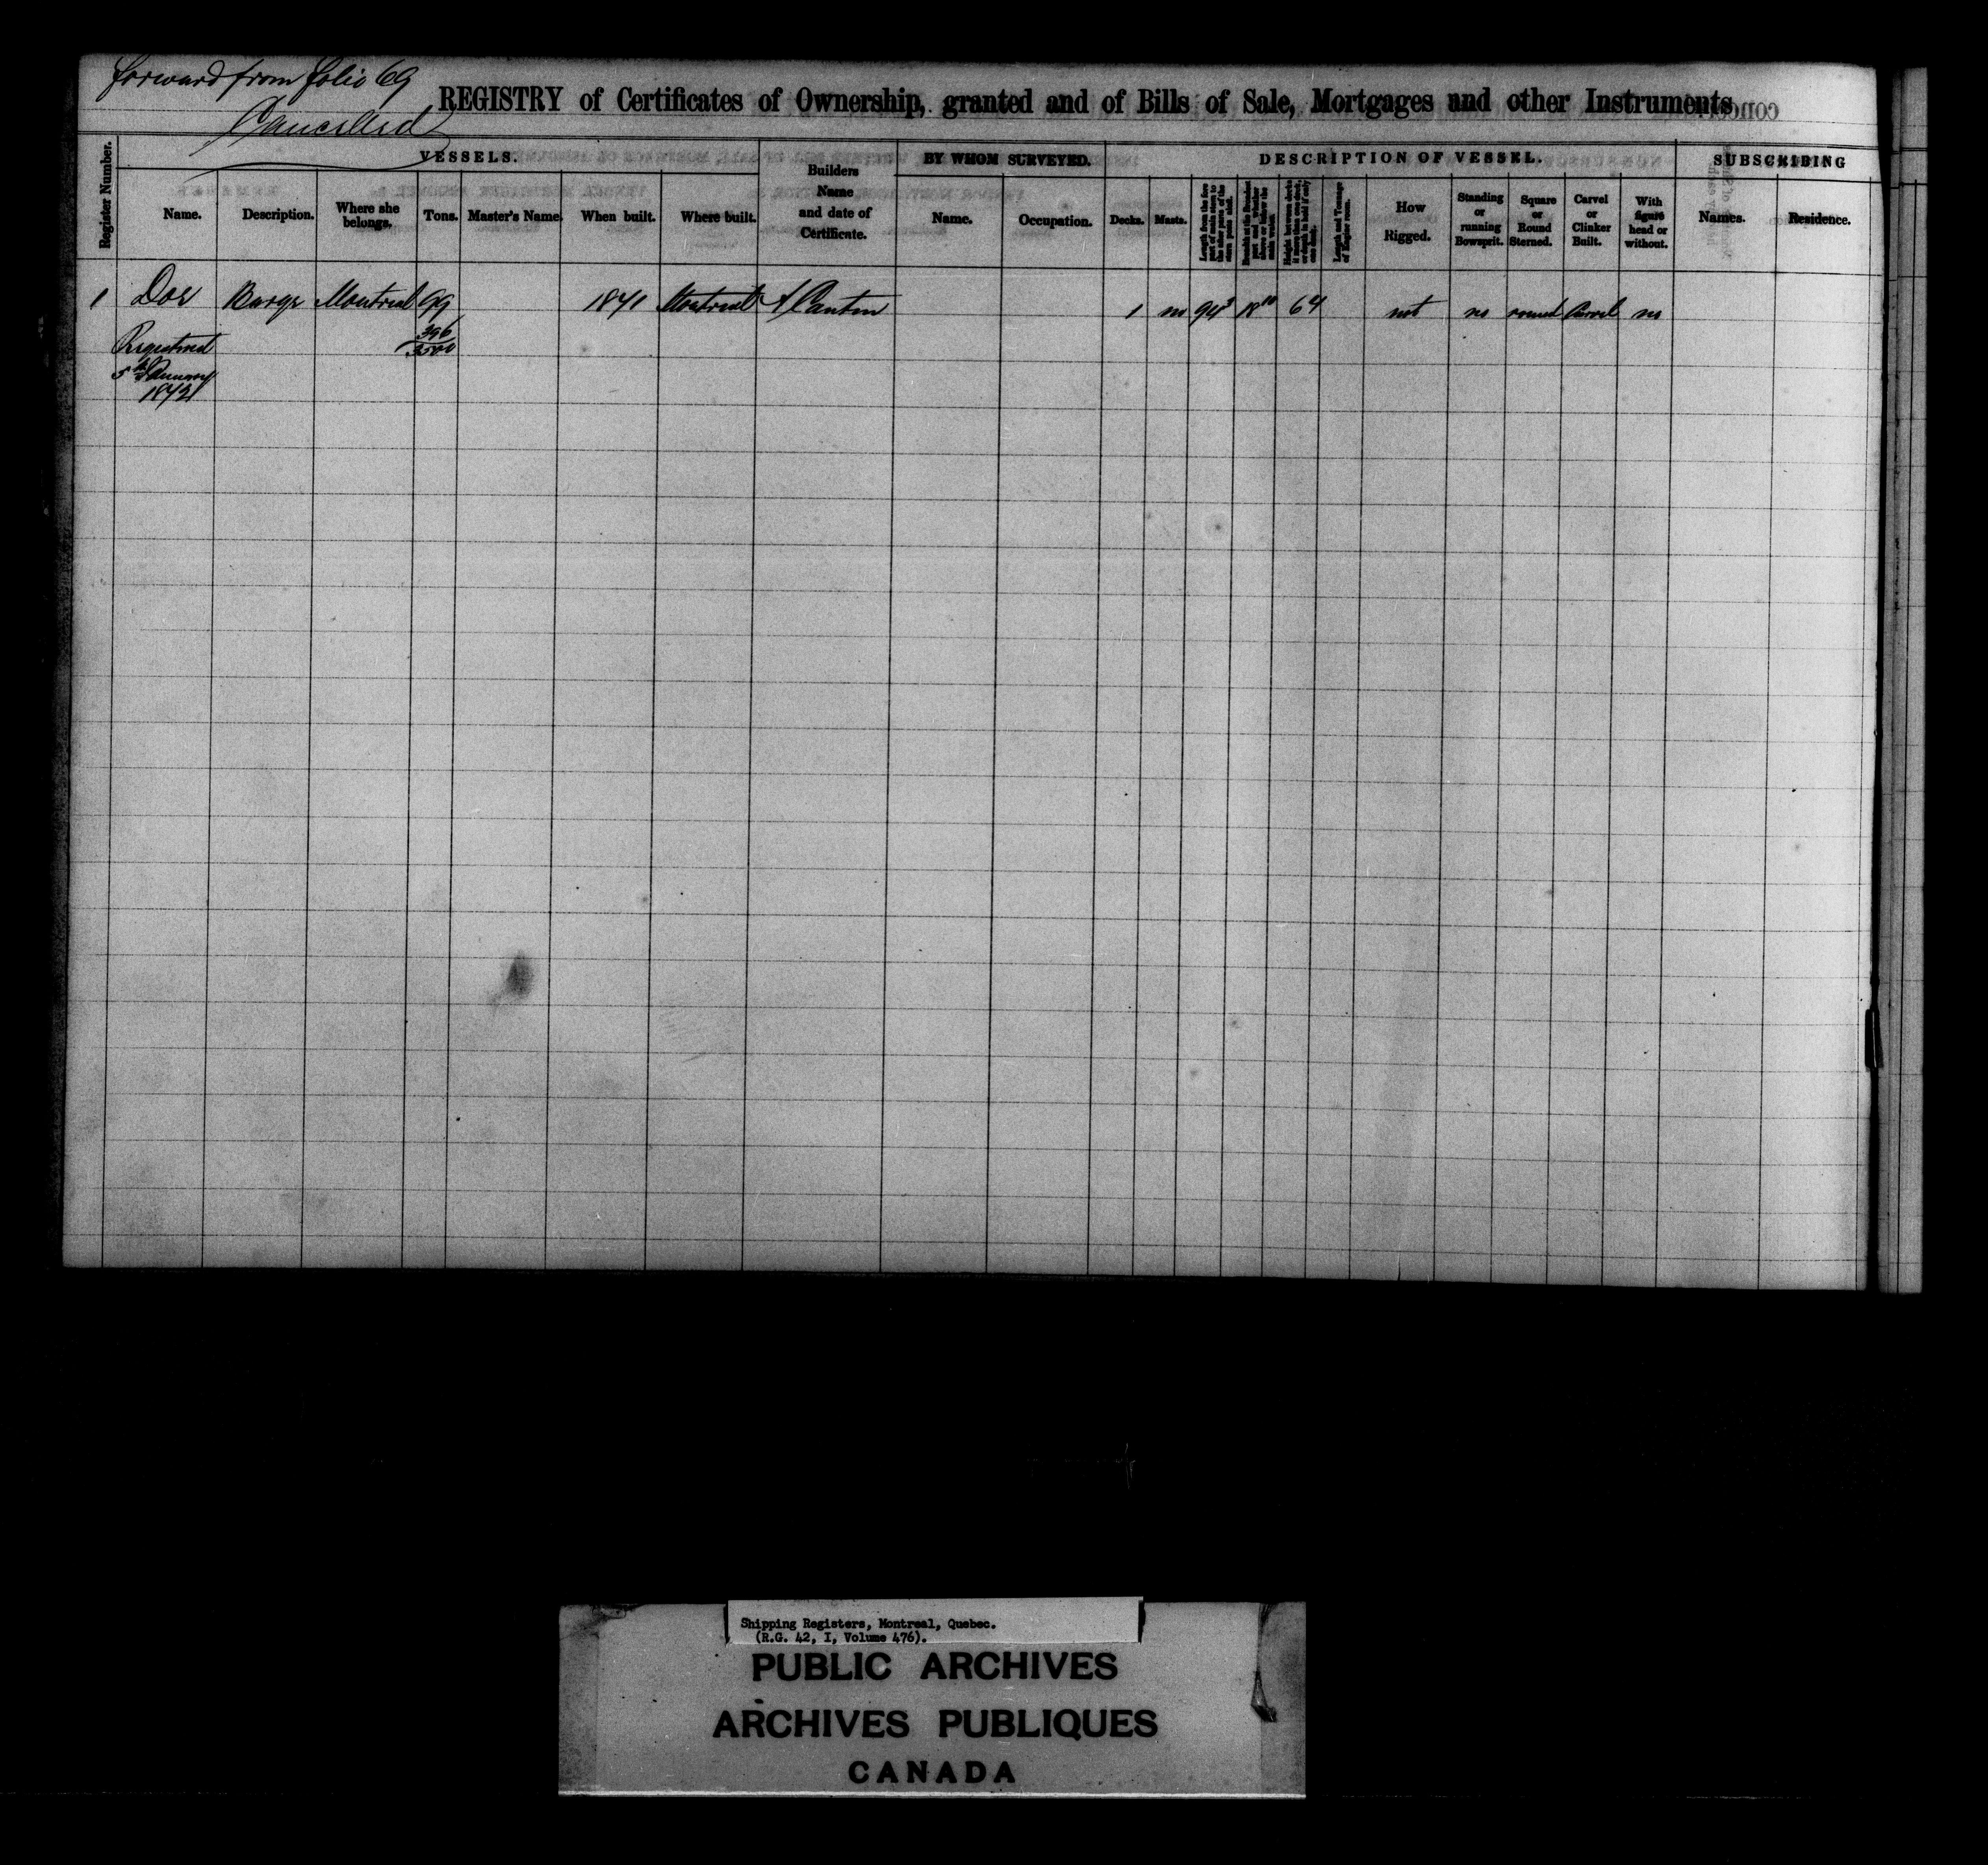 forward from folio 69
Cancelled
REGISTRY of Certificates of Ownership, granted and of Bills of Sale, Mortgages and other Instruments
Register Number.
VESSELS.
Builders Name and date of Certificate.
BY WHOM SURVEYED.
DESCRIPTION OF VESSEL.
SUBSCRIBING
Name. Description. Where she belongs. Tons. Master's Name. When built. Where built.
Name. Occupation.
Decks. Masts.
Length and Tonnage of Engine room.
How Rigged.
Standing or running Bowsprit.
Square or Round Sterned.
Carvel or Clinker Built.
With figure head or without.
Names. Residence.
1 Doe Barge Montreal 99 1841 Montreal A Cantin 1 no 94 3 18 10 6 4 not no round Carvel no
396
3500
Registered
5th January
1842
Shipping Registers, Montreal, Quebec.
(R.G. 42, I, Volume 476).
PUBLIC ARCHIVES
ARCHIVES PUBLIQUES
CANADA